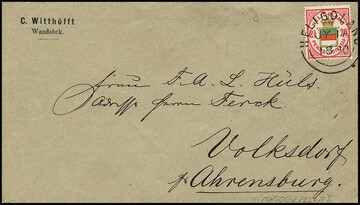 C. Witthöfft
Wandsbek.
HELIGOLAND
20 20
Frau F. A. L. Hüls.
Adresse Herrn Ferck
Volksdorf
p/Ahrensburg.